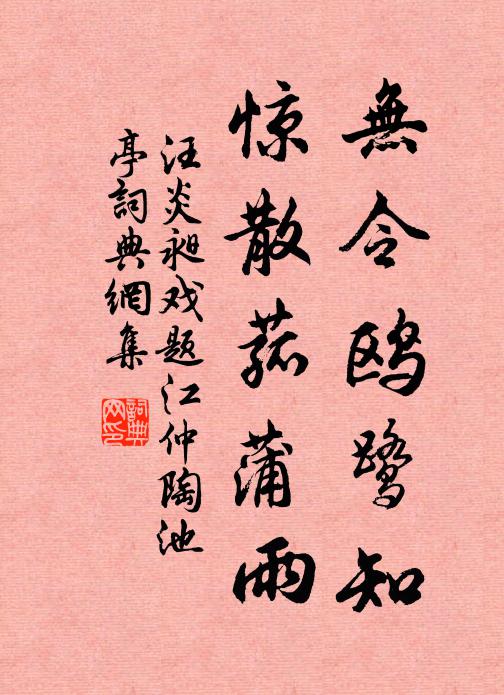 無令鸥鹭知
惊散菰蒲雨
汪炎昶戏题江仲陶池
亭詞典網集
詞典
网印